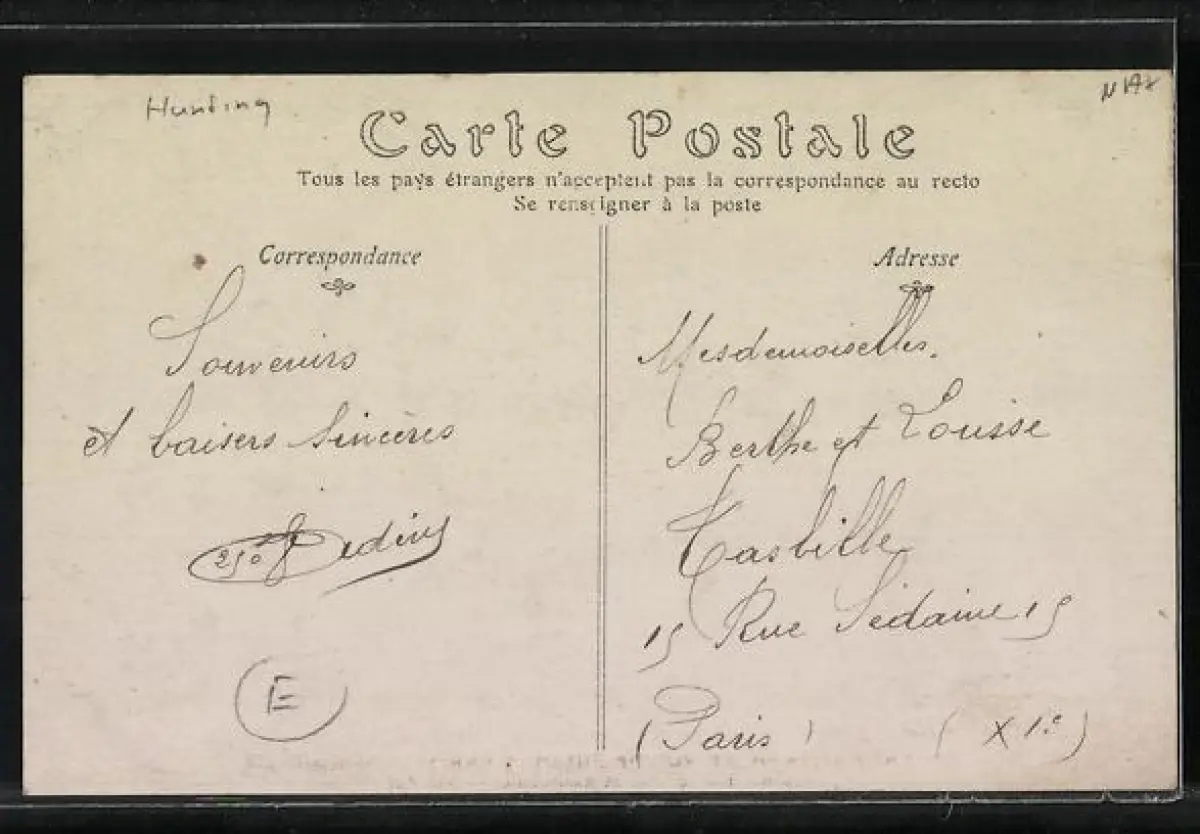 Hunting
Carte Postale
Tous les pays étrangers n'acceptent pas la correspondance au recto
Se renseigner à la poste
Correspondance
Souvenirs
et baisers sincères
E
Adresse
Mesdemoiselles.
Berthe et Louisse
Tasbille
15 Rue Sedaine 15
(Paris) (XI.e)